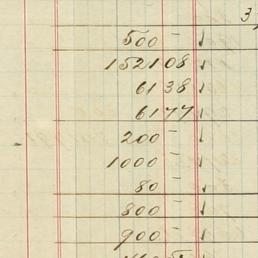 3
500 –
1521 08
61 38
61 77
200 –
1000 –
80 –
800 –
900 –